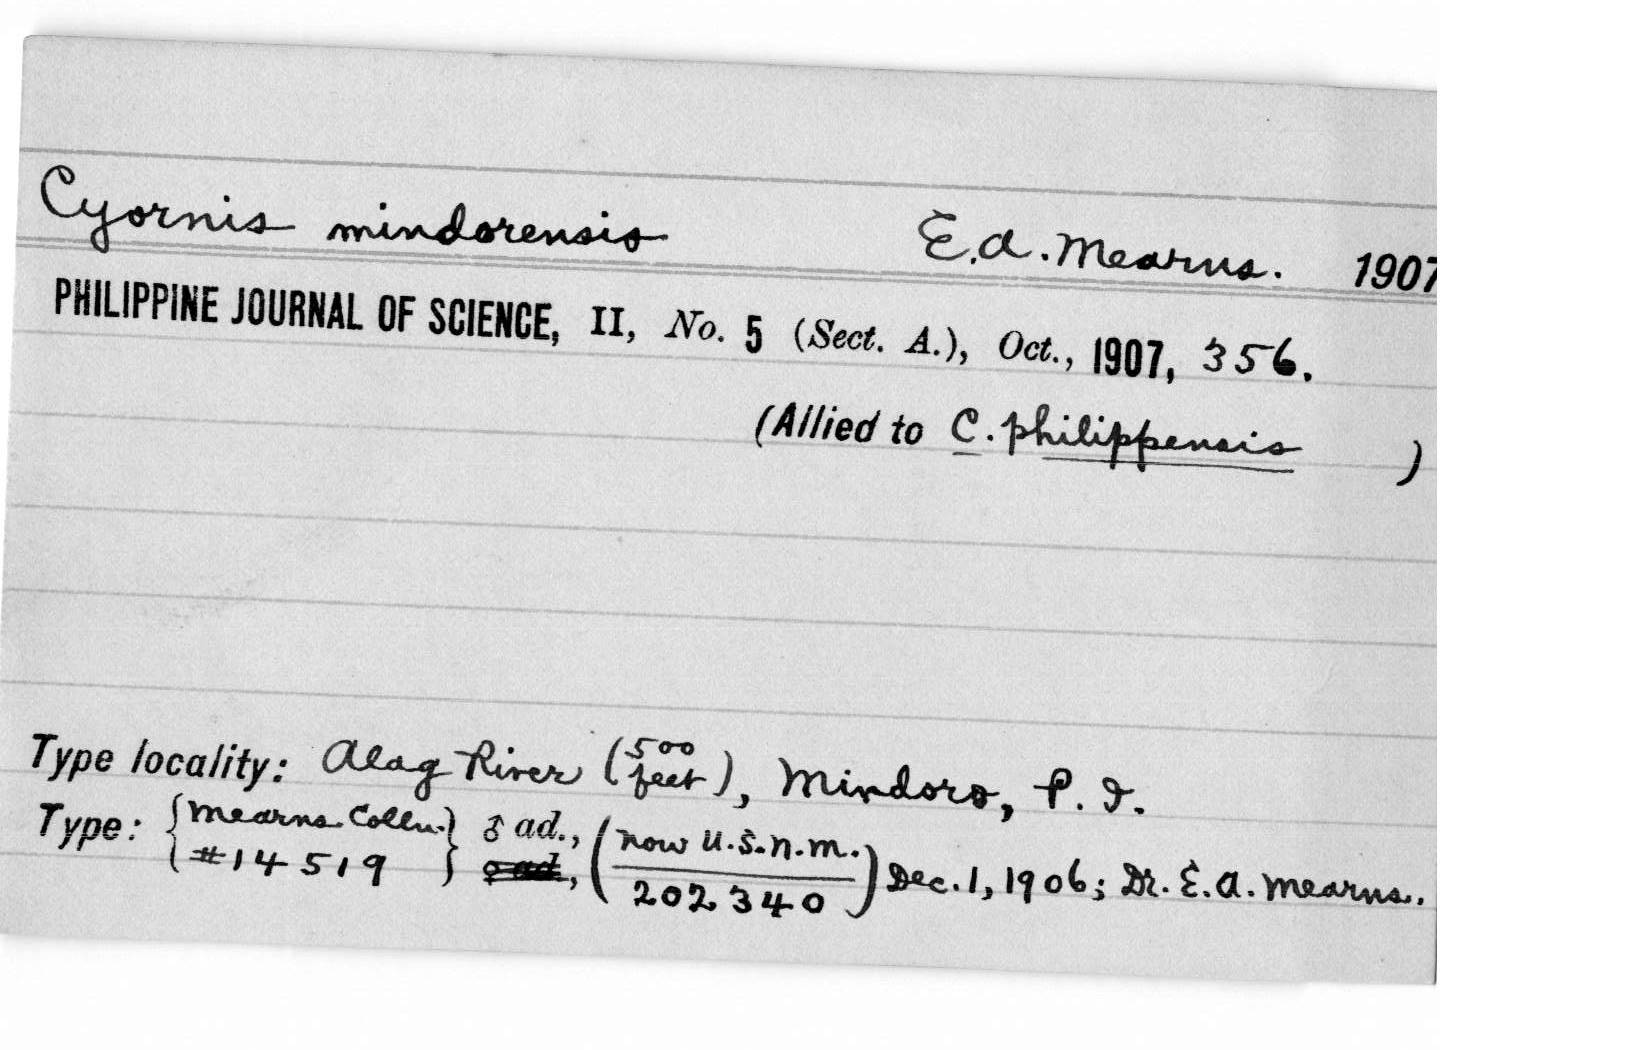 Cyornis mindorensis E.A. Mearns. 1907
PHILIPPINE JOURNAL OF SCIENCE, II, No. 5 (Sect. A.), Oct., 1907, 356.
(Allied to C. philippensis )
Type locality: Alag River (500 feet), Mindoro, P. I.
Type: {Mearns Colln. #14519} ♂ ad., ♀ ad., (now U.S.N.M. 202340) Dec. 1, 1906; Dr. E. A. Mearns.